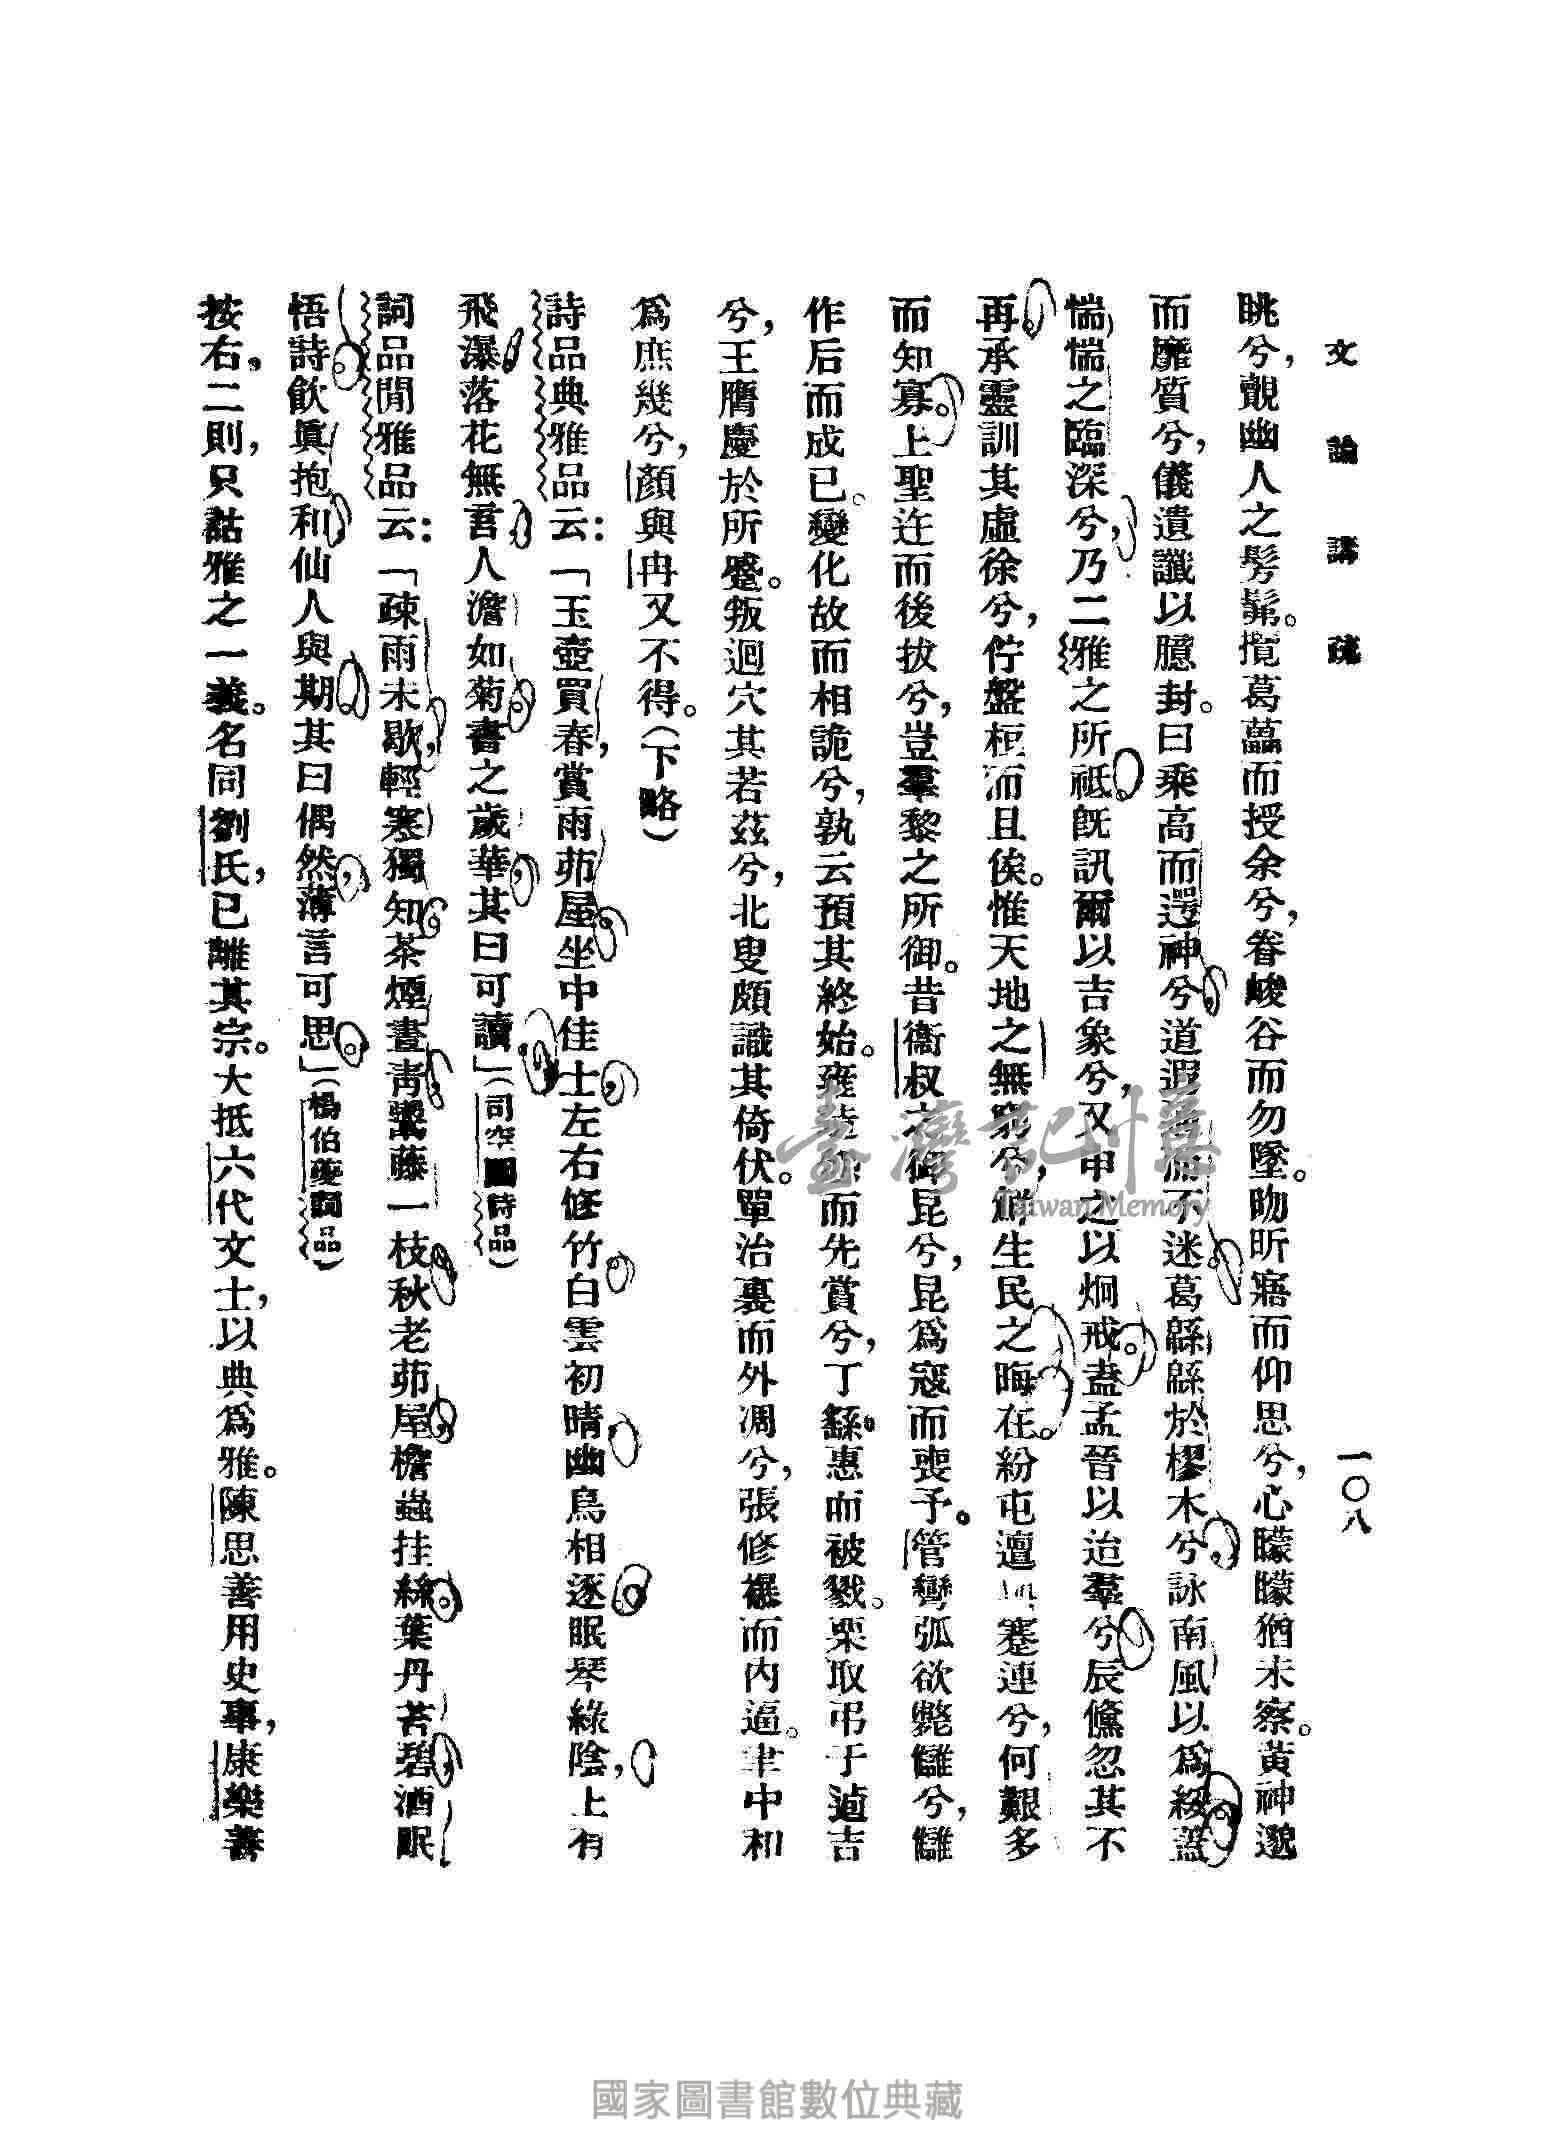 文論講疏
一〇八
眺兮，覿幽人之髣髴。攬葛藟而授余兮，眷峻谷而勿墜。昒昕寤而仰思兮，心矇矇猶未察。黃神邈
而靡質兮，儀遺讖以臆封。曰乘高而遌神兮，道遐通而不迷。葛緜緜於樛木兮，詠南風以爲綏。蓋
惴惴之臨深兮，乃二雅之所祗。旣訊爾以吉象兮，又申之以炯戒。盍孟晉以迨羣兮，辰儵忽其不
再。承靈訓其虛徐兮，佇盤桓而且俟。惟天地之無窮兮，鮮生民之晦在。紛屯邅與蹇連兮，何艱多
而知寡。上聖迕而後拔兮，豈羣黎之所御。昔衞叔之御昆兮，昆爲寇而喪予。管彎弧欲斃讎兮，讎
作后而成已。變化故而相詭兮，孰云預其終始。雍造怨而先賞兮，丁繇惠而被戮。栗取弔于逌吉
兮，王膺慶於所慼。叛迴穴其若茲兮，北叟頗識其倚伏。單治裏而外凋兮，張修襮而內逼。聿中和
爲庶幾兮，顏與冉又不得。（下略）
詩品典雅品云：「玉壺買春，賞雨茆屋。坐中佳士，左右修竹。白雲初晴，幽鳥相逐。眠琴綠陰，上有
飛瀑。落花無言，人澹如菊。書之歲華，其曰可讀。」（司空圖詩品）
詞品閒雅品云：「疎雨未歇，輕寒獨知。茶煙晝靑，鬟藤一枝。秋老茆屋，檐蟲挂絲。葉丹苔碧，酒眠
悟詩。飲眞抱和，仙人與期。其曰偶然，薄言可思。」（楊伯夔詞品）
按右，二則，只詁雅之一義。名同劉氏，已離其宗。大抵六代文士，以典爲雅。陳思善用史事，康樂善
臺灣記憶
Taiwan Memory
國家圖書館數位典藏